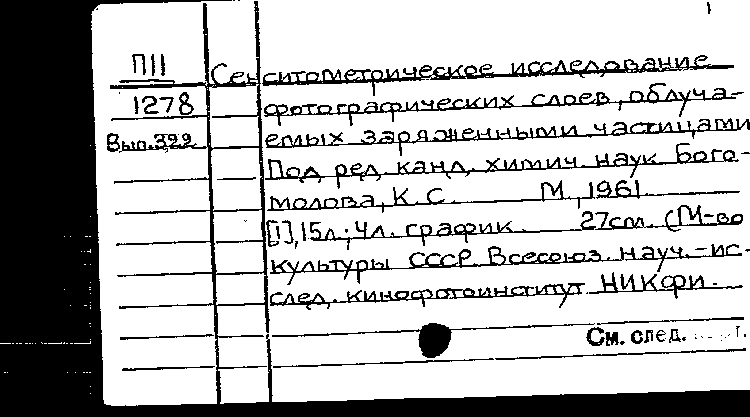 П11 Сенситометрическое исследование
1278 фотографических слоев, облуча-
Вып.322 емых заряженными частицами
Под ред. канд. химич. наук Бого-
молова, К.С. М., 1961.
[1], 15л.; 4л. график. 27см. (М-во
культуры СССР. Всесоюз. науч.-ис-
след. кинофотоинститут НИКФИ.
См. след.